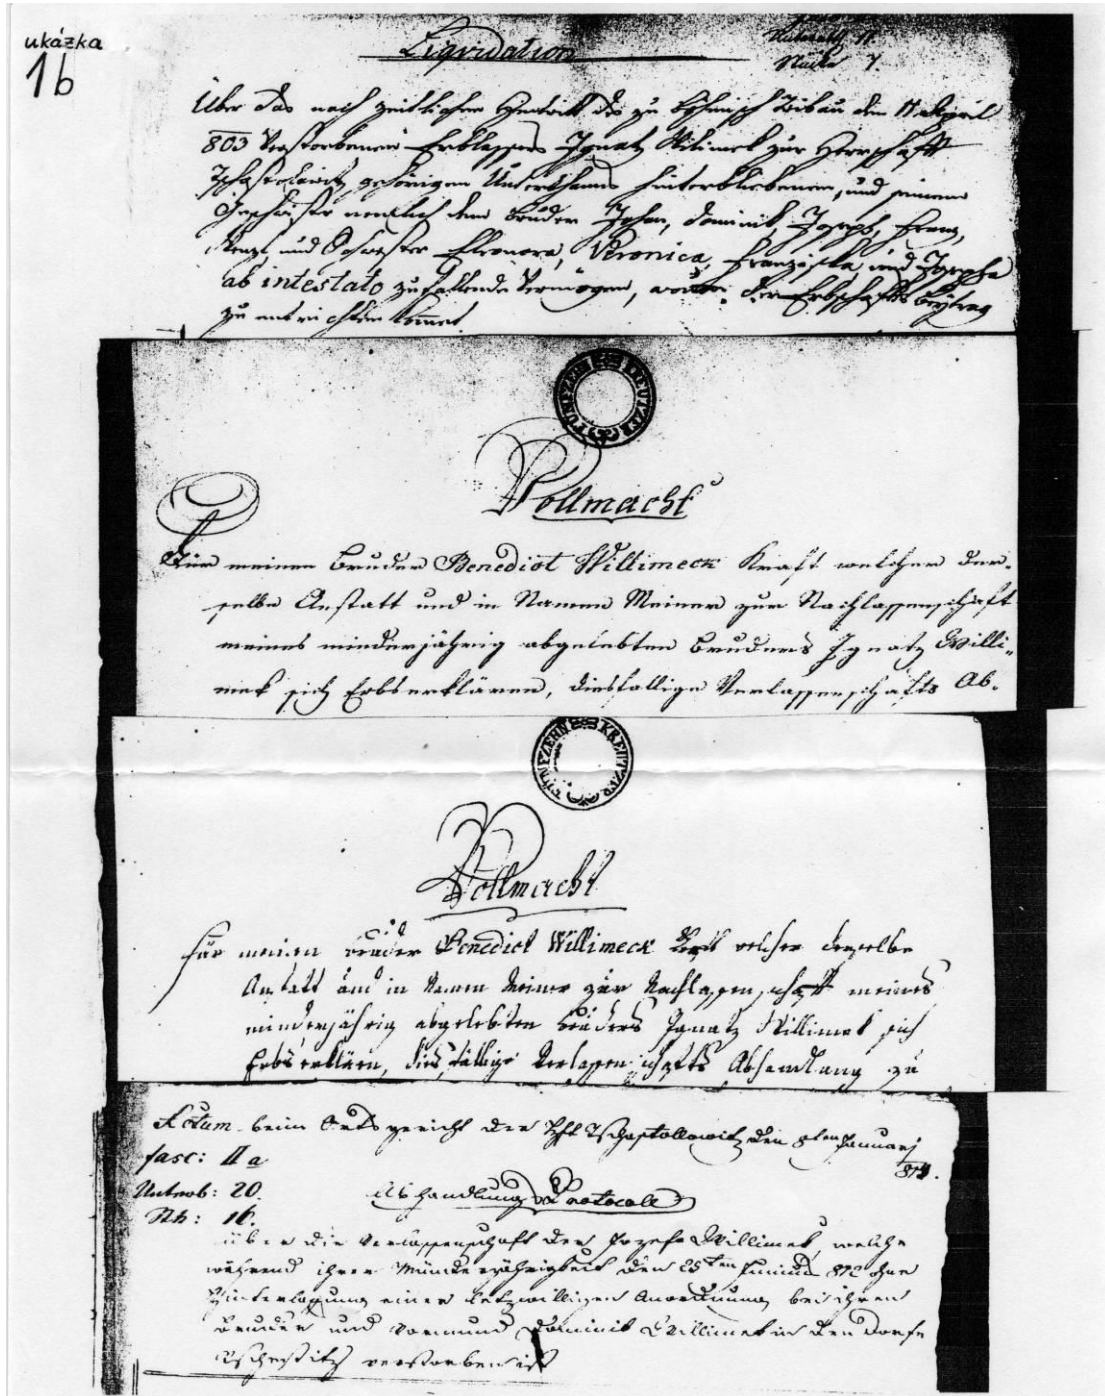 ukázka
1b
Liquidation
Über das nach zeitlichem Hintritt des zu Böhmisch Tribau den 11 April
803 Verstorbenen Erblassers Ignatz Wilimek zur Herrschaft
gehörigen Unterthans hinterbliebenen, und seinem
Geschwister nemlich dem Bruder Johan, Dominik, Joseph, Franz,
und Schwester Eleonora, Veronica, Franziska und Josepha
ab intestato zufallende Vermögen, wovon der Erbschafts Beytrag
zu entrichten kommet
FUNFZEHN KREUTZER
Vollmacht
Für meinen Bruder Benedict Willimeck Kraft welcher der-
selbe Anstatt und in Namen Meiner zur Nachlassenschaft
meines minderjährig abgelebten Bruders Ignatz Willi-
mek sich Erbserklären, diesfällige Verlassenschafts Ab-
FUNFZEHN KREUTZER
Vollmacht
für meinen Bruder Benedict Willimeck Kraft welcher derselbe
Anstatt und in Namen Meiner zur Nachlassenschaft meines
minderjährig abgelebten Bruders Ignatz Willimek sich
Erbserklären, diesfällige Verlassenschafts Abhandlung zu
Actum beim Ortsgericht der Hft Tschastollowitz den 8ten Januarj
fasc: II a
Untrab: 20.
Stk: 16.
Abhandlungs Protocoll
über die Verlassenschaft der Jozefa Willimek, welche
während ihrer Minderjährigkeit den 25ten Junius 812 ohne
Hinterlassung einer letzwilligen Anordnung bei ihren
Bruder und Vormund Dominik Willimek in den Dorfe
verstorben ist